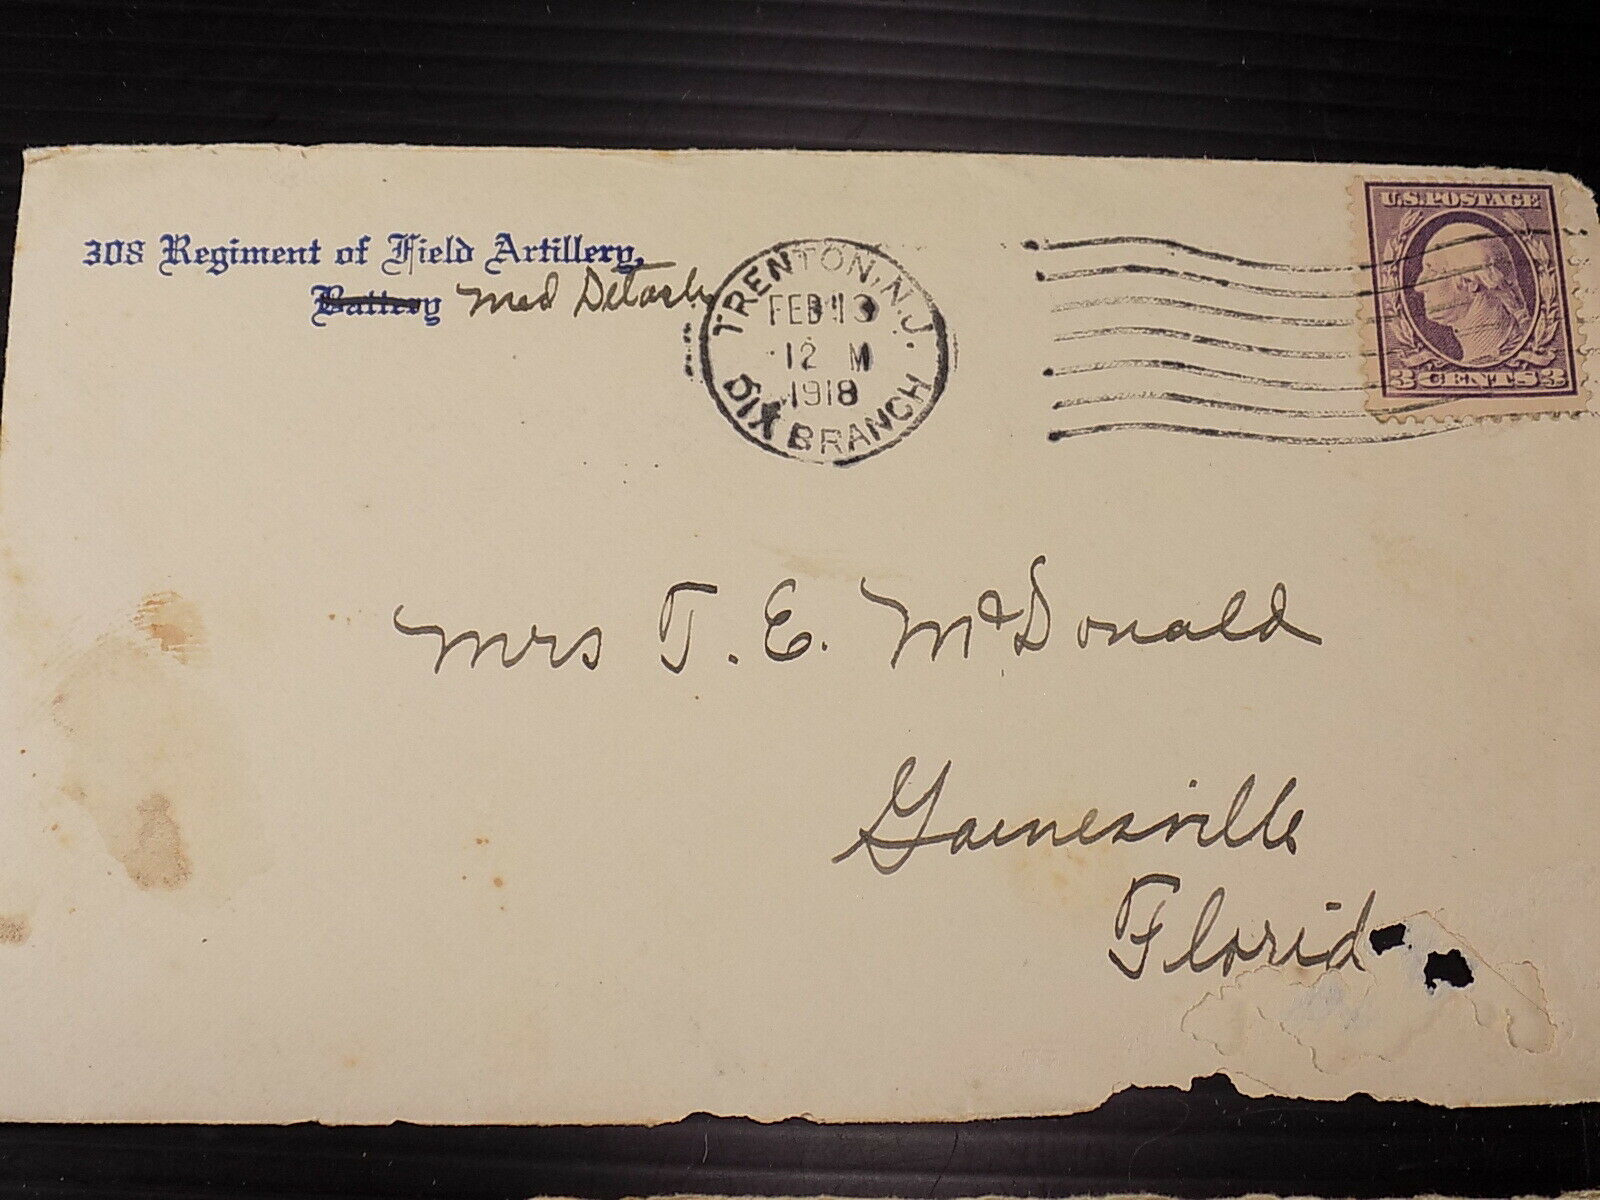 308 Regiment of Field Artillery,
Battery Med Detach
TRENTON, N.J.
FEB 13
12 M
1918
DIX BRANCH
U.S. POSTAGE
3 CENTS 3
Mrs T. E. McDonald
Gainesville
Florid